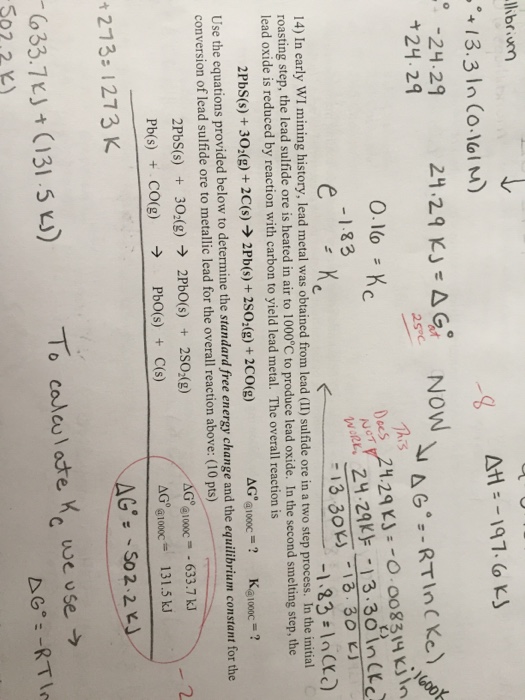 llibrium
ΔH = -197.6 KJ
-8
° + 13.3 ln (0.161M)
° -24.29
+24.29
24.29 KJ = ΔG° at
25°C
NOW ↘ ΔG° = -RT ln(Kc)
0.16 = Kc
This
Does
NOT
WORK.
24.29 KJ = -0.008314 KJ ln
1600K
24.29KJ = -13.30 ln(Kc)
-13.30KJ -13.30 KJ
-1.83 = ln(Kc)
e -1.83 = Kc
14) In early WI mining history, lead metal was obtained from lead (II) sulfide ore in a two step process. In the initial
roasting step, the lead sulfide ore is heated in air to 1000°C to produce lead oxide. In the second smelting step, the
lead oxide is reduced by reaction with carbon to yield lead metal. The overall reaction is
2PbS(s) + 3O₂(g) + 2C(s) → 2Pb(s) + 2SO₂(g) + 2CO(g) ΔG° @1000C = ? K@1000C = ?
Use the equations provided below to determine the standard free energy change and the equilibrium constant for the
conversion of lead sulfide ore to metallic lead for the overall reaction above: (10 pts)
2PbS(s) + 3O₂(g) → 2PbO(s) + 2SO₂(g) ΔG° @1000C = - 633.7 kJ
Pb(s) + CO(g) → PbO(s) + C(s) ΔG° @1000C = 131.5 kJ
-2
ΔG° = -502.2 KJ
+273 = 1273 K
-633.7 KJ + (131.5 KJ)
To calculate Kc we use →
502.2 K)
ΔG° = -RT ln